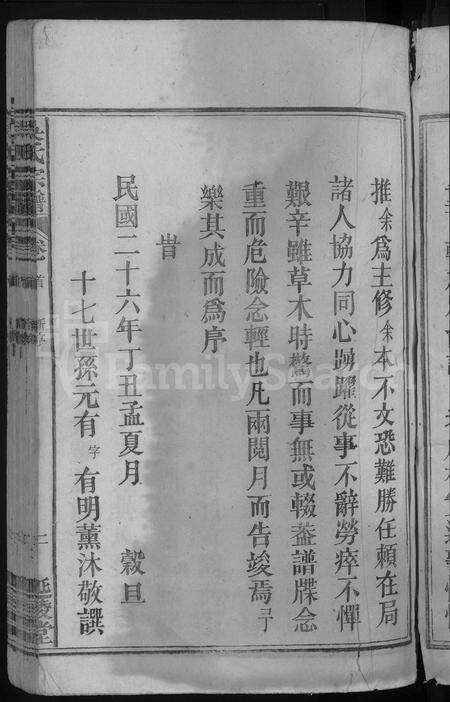 推余爲主修余本不文恐難勝任賴在局
諸人協力同心踴躍從事不辭勞瘁不憚
艱辛雖草木時驚而事無或輟葢譜牒念
重而危險念輕也凡兩閱月而告竣焉予
樂其成而爲序
旹
民國二十六年丁丑孟夏月 穀旦
十七世孫元有字有明薰沐敬譔
氏宗譜 卷首
二
陵堂
FamilySearch